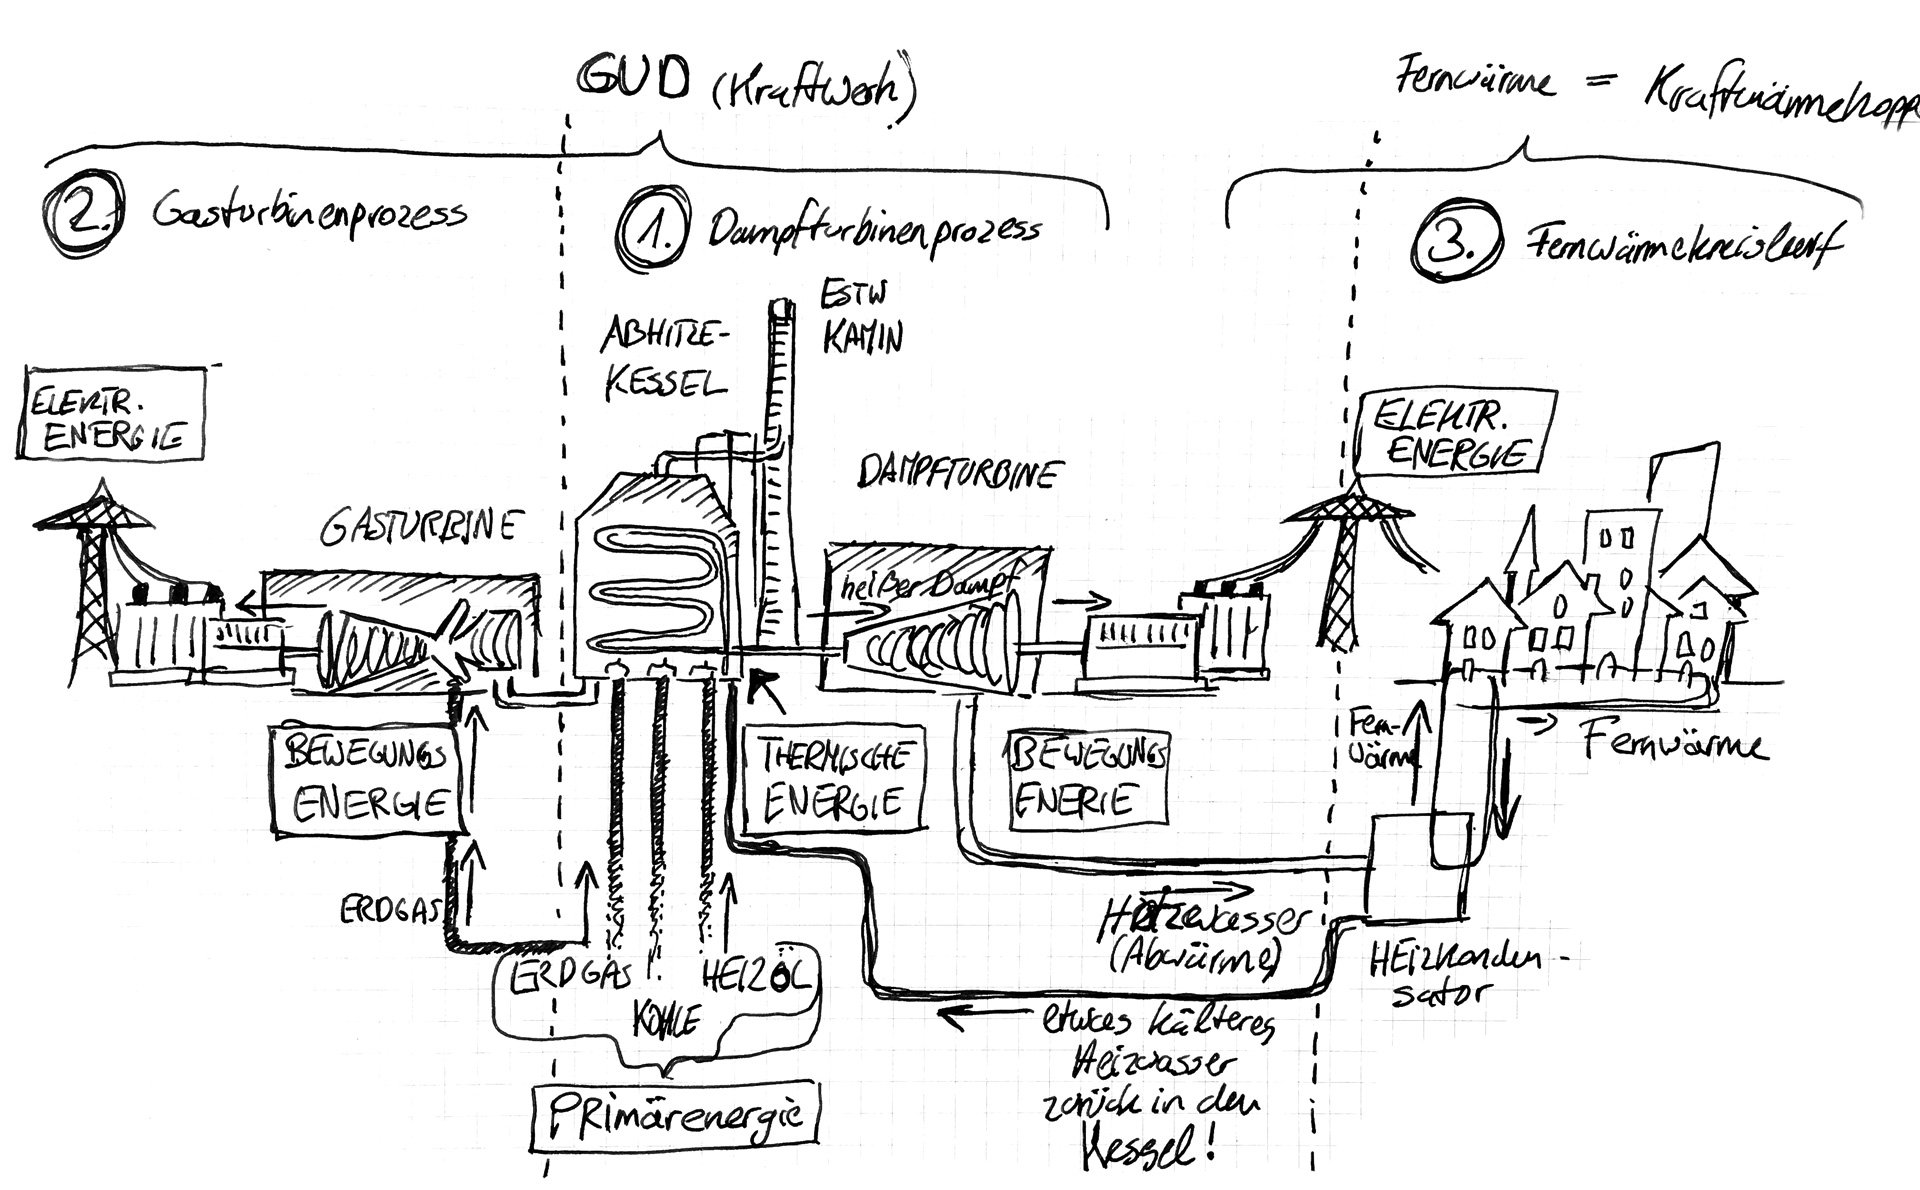 GUD (Kraftwerk)
Fernwärme = Kraftwärmekopp
2. Gasturbinenprozess
1. Dampfturbinenprozess
3. Fernwärmekreislauf
ESTW
KAMIN
ABHITZE-
KESSEL
ELEKTR.
ENERGIE
ELEKTR.
ENERGIE
DAMPFTURBINE
GASTURBINE
heißer Dampf
BEWEGUNGS
ENERGIE
THERMISCHE
ENERGIE
BEWEGUNGS
ENERIE
Fern-
Wärme
Fernwärme
ERDGAS
Heizwasser
(Abwärme)
HEizkonden-
sator
ERDGAS
HEIZÖL
KOHLE
etwas kälteres
Heizwasser
zurück in den
Kessel!
PRimärenergie